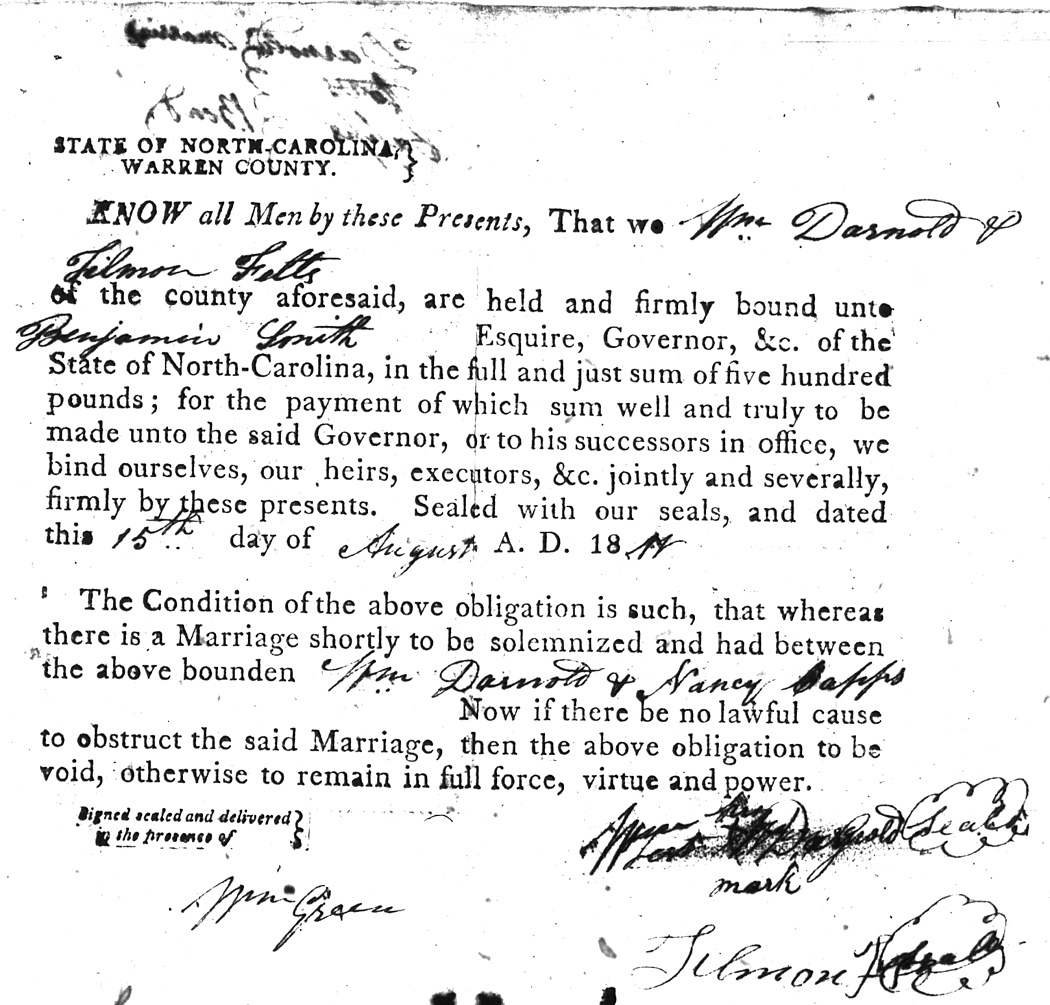 STATE OF NORTH-CAROLINA,
WARREN COUNTY.
KNOW all Men by these Presents, That we Wm Darnold &
Tilmon Felts
of the county aforesaid, are held and firmly bound unto
Benjamin Smith Esquire, Governor, &c. of the
State of North-Carolina, in the full and just sum of five hundred
pounds; for the payment of which sum well and truly to be
made unto the said Governor, or to his successors in office, we
bind ourselves, our heirs, executors, &c. jointly and severally,
firmly by these presents. Sealed with our seals, and dated
this 15th day of August A. D. 18
The Condition of the above obligation is such, that whereas
there is a Marriage shortly to be solemnized and had between
the above bounden Wm Darnold & Nancy Capps
Now if there be no lawful cause
to obstruct the said Marriage, then the above obligation to be
void, otherwise to remain in full force, virtue and power.
Signed sealed and delivered
in the presence of
Darnold Seal
mark
Wm Green
Tilmon Seal